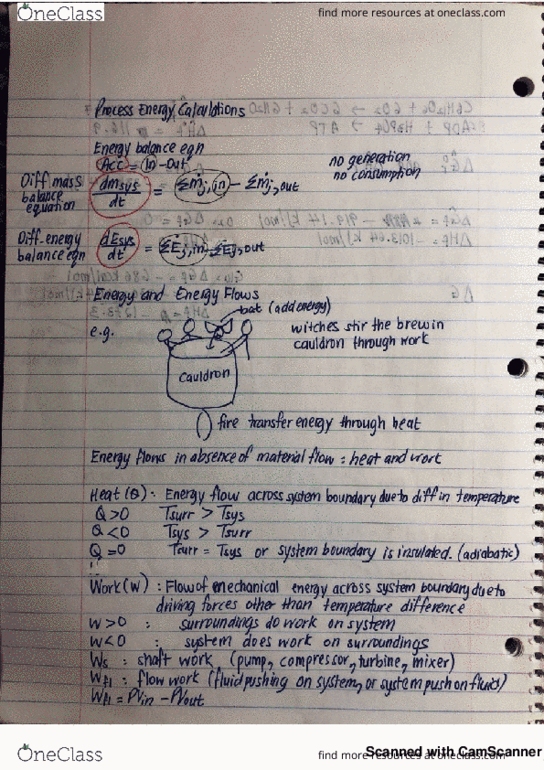 OneClass
find more resources at oneclass.com
Process Energy Calculations
Energy balance eqn
Acc = In - Out
no generation
no consumption
Diff mass balance equation
dmsys/dt = Σṁj, in - Σṁj, out
Diff-energy balance eqn
dEsys/dt = ΣĖj, in - ΣĖj, out
Energy and Energy Flows
bat (add energy)
e.g.
witches stir the brew in
cauldron through work
Cauldron
fire transfer energy through heat
Energy flows in absence of material flow : heat and work
Heat (Q) : Energy flow across system boundary due to diff in temperature
Q > 0 Tsurr > Tsys
Q < 0 Tsys > Tsurr
Q = 0 Tsurr = Tsys or system boundary is insulated. (adiabatic)
Work (W) : Flow of mechanical energy across system boundary due to
driving forces other than temperature difference
W > 0 : surroundings do work on system
W < 0 : system does work on surroundings
Ws : shaft work (pump, compressor, turbine, mixer)
Wfl : flow work (fluid pushing on system, or system push on fluid)
Wfl = PVin - PVout
OneClass
find more resources at oneclass.com
Scanned with CamScanner